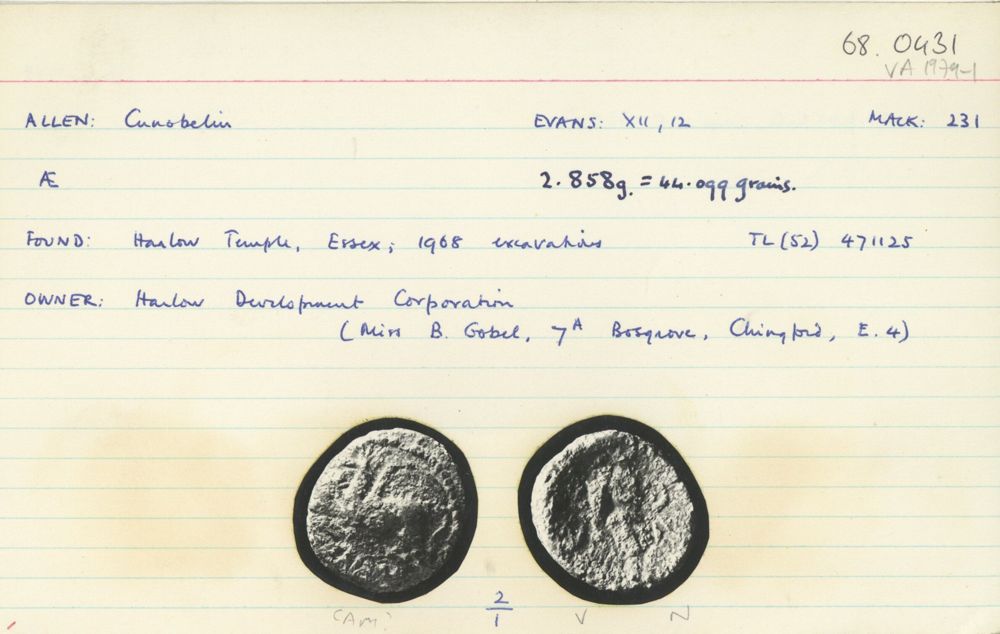 68.0431
VA 1979-1
ALLEN: Cunobelin EVANS: XII, 12 MACK: 231
Æ 2.858g. = 44.099 grains.
FOUND: Harlow Temple, Essex; 1968 excavations TL (52) 471125
OWNER: Harlow Development Corporation
(Miss B. Gobel, 7A Bosgrove, Chingford, E.4)
2/1
CAM? V N